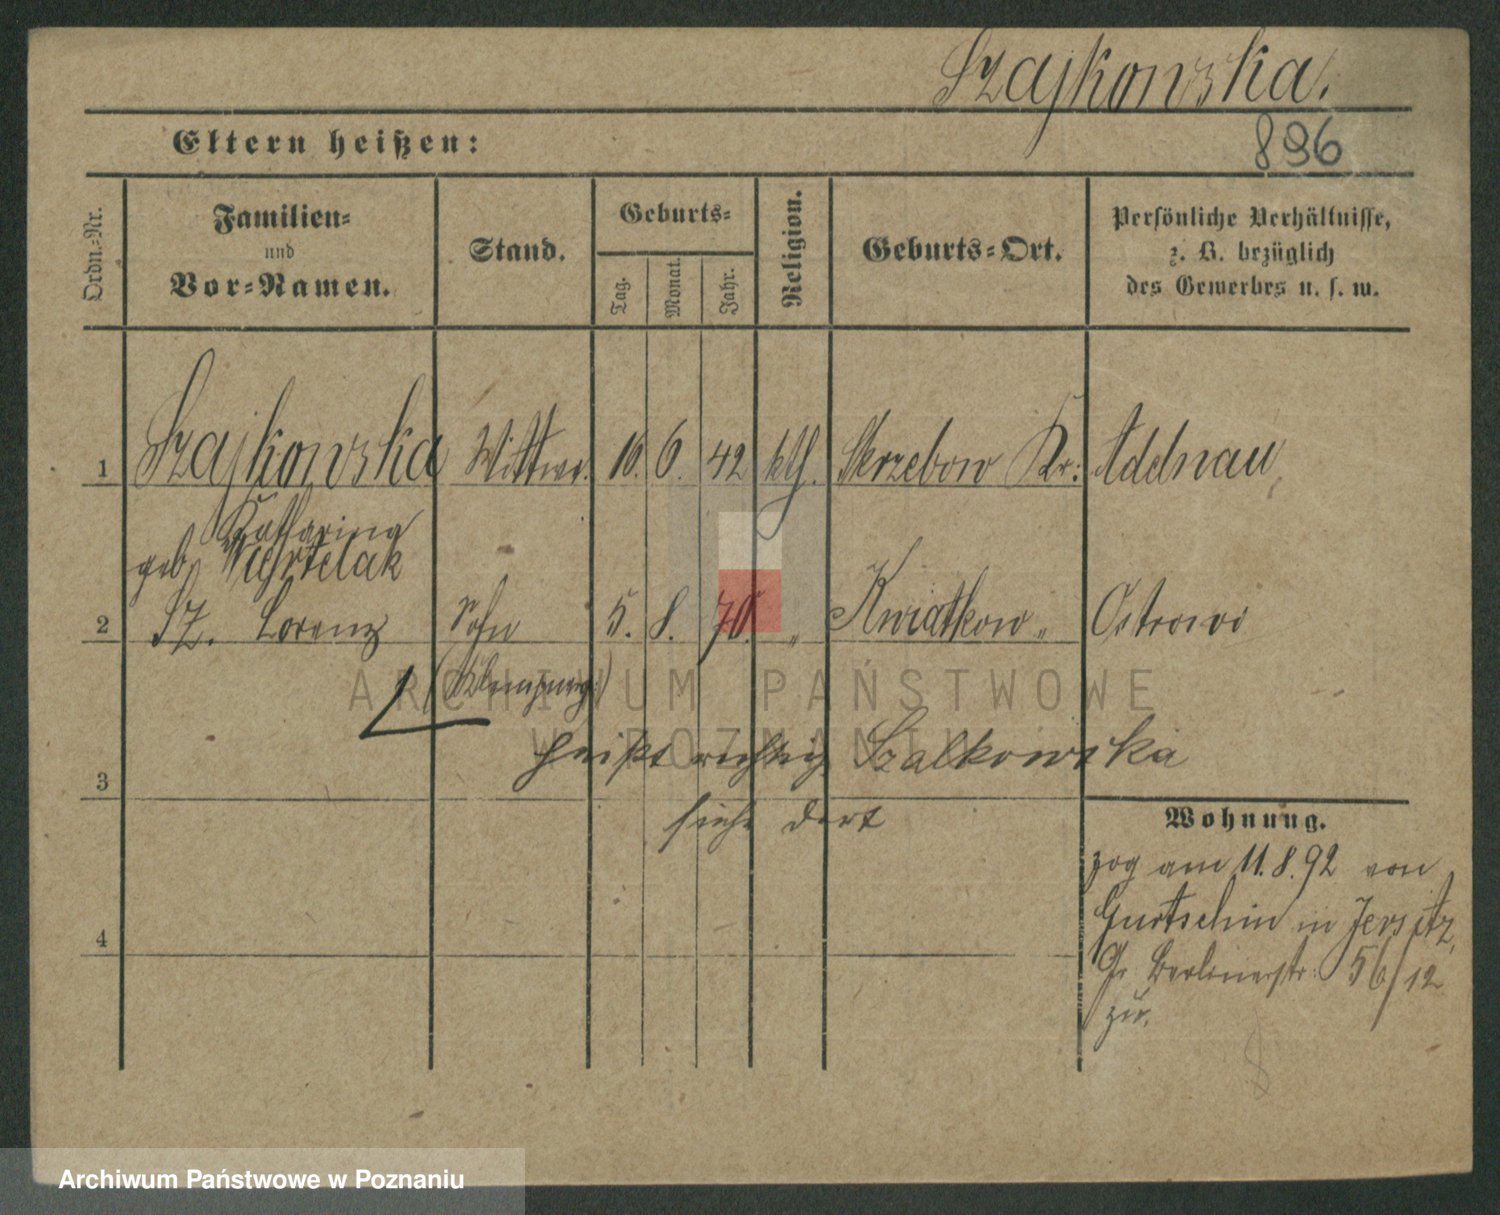 Szajkowska.
Eltern heißen:
896
Ordn.-Nr.
Familien-
und
Vor-Namen.
Stand.
Geburts-
Tag.
Monat.
Jahr.
Religion.
Geburts-Ort.
Persönliche Verhältnisse,
z. B. bezüglich
des Gewerbes u. s. w.
1 Szajkowska Wittwe. 16. 6. 42 kth. Skrzebow Kr: Adelnau
Katharina
geb.
2 Sz. Lorenz Sohn 5. 8. 70. " Kwiatkow " Ostrowo
(Klempner)
ARCHIWUM PAŃSTWOWE
W POZNANIU
3 heißt richtig Szalkowska
siehe dort
Wohnung.
zog am 11.8.92 von
Gurtschin in Jersitz,
Gr. Berlinerstr: 56/12
zu.
4
Archiwum Państwowe w Poznaniu